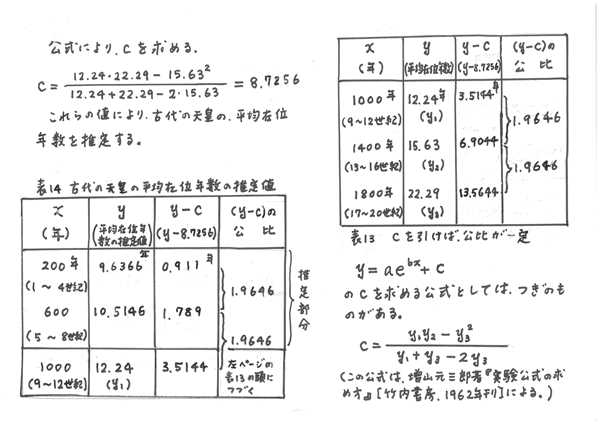 公式により、cを求める。
C = (12.24・22.29 − 15.63²) / (12.24 + 22.29 − 2・15.63) = 8.7256
これらの値により、古代の天皇の、平均在位
年数を推定する。
表14 古代の天皇の平均在位年数の推定値
x y y−c (y−c)の
(年) (平均在位年数の推定値) (y−8.7256) 公比
200年 9.6366年 0.911年
(1〜4世紀)
1.9646
600 10.5146 1.789
(5〜8世紀)
1.9646
推定部分
1000 12.24 3.5144 左ページの
(9〜12世紀) (y₁) 表13の頭に
つづく
x y y−c (y−c)の
(年) (平均在位年数) (y−8.7256) 公比
1000年 12.24年 3.5144年
(9〜12世紀) (y₁)
1.9646
1400年 15.63 6.9044
(13〜16世紀) (y₂)
1.9646
1800年 22.29 13.5644
(17〜20世紀) (y₃)
表13 cを引けば、公比が一定
y = ae^{bx} + c
のcを求める公式としては、つぎのも
のがある。
c = (y₁y₂ − y₃²) / (y₁ + y₃ − 2y₃)
(この公式は、増山元三郎著『実験公式の求
め方』[竹内書房、1962年刊]による。)